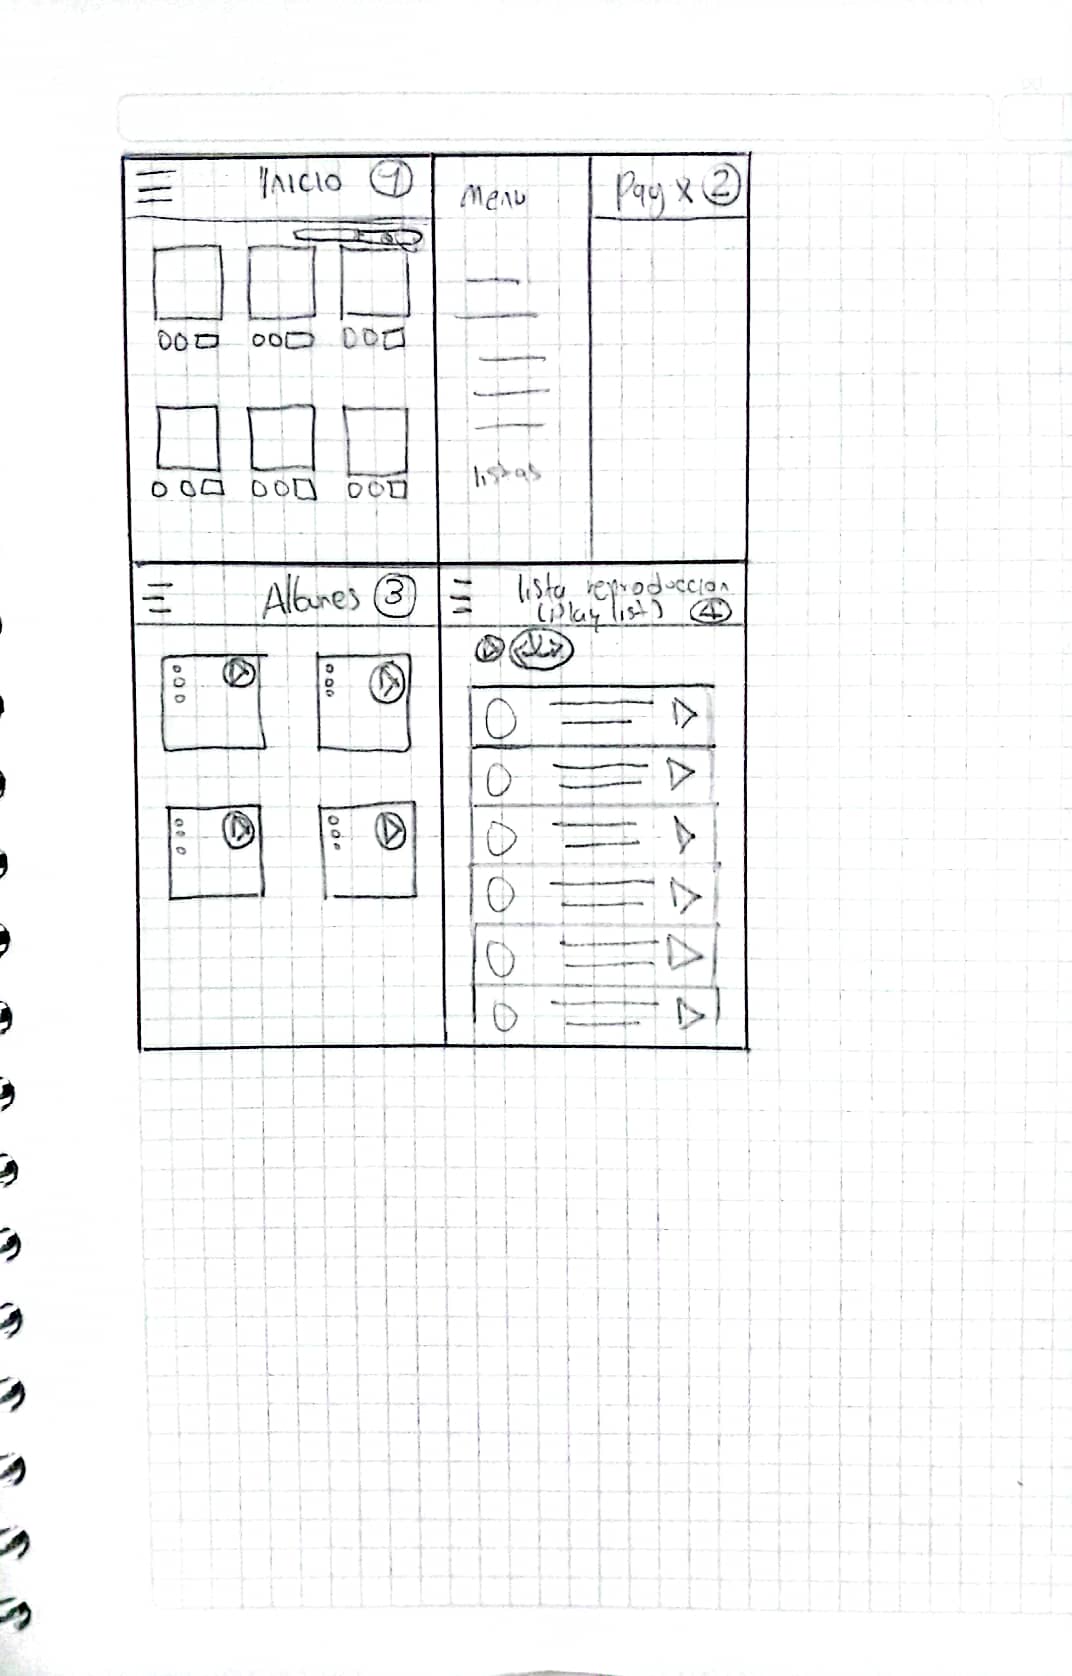 Inicio 1
Menu
Pag x 2
listas
Albunes 3
lista reproduccion
(play list) 4